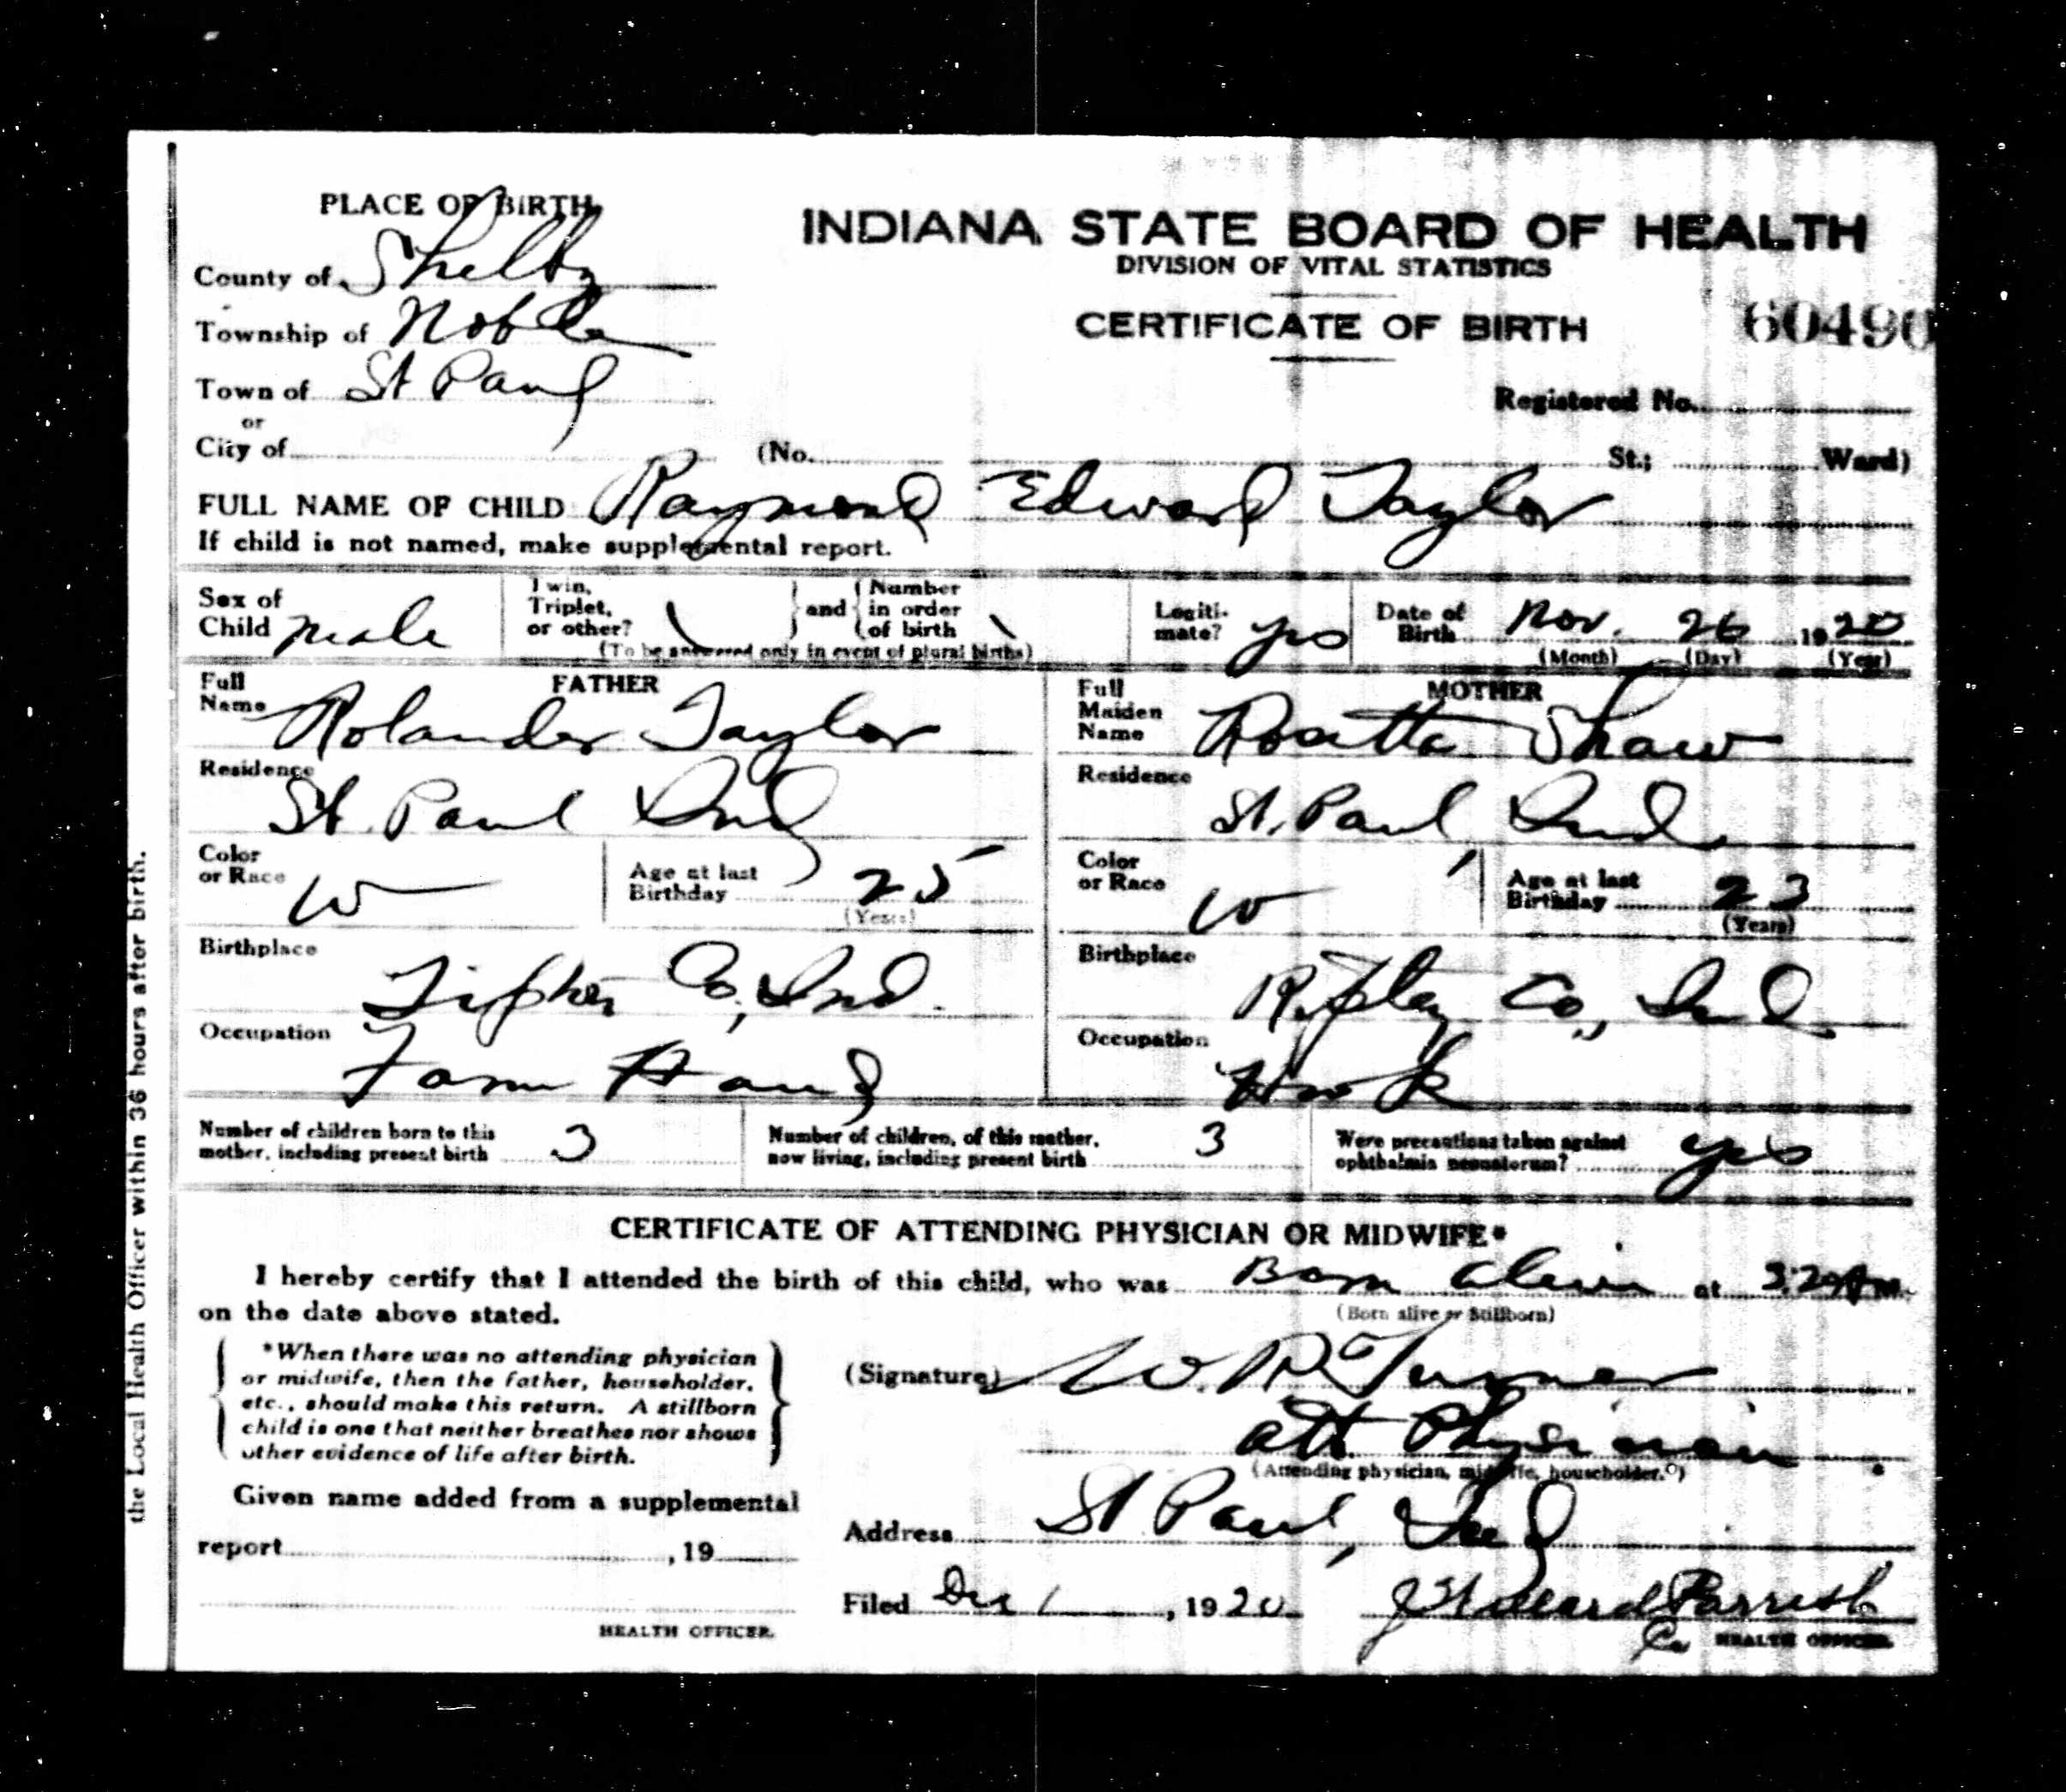 PLACE OF BIRTH
County of Shelby
Township of Noble
Town of St Paul
or
City of
INDIANA STATE BOARD OF HEALTH
DIVISION OF VITAL STATISTICS
CERTIFICATE OF BIRTH
60490
Registered No.
(No. St.; Ward)
FULL NAME OF CHILD Raymond Edward Taylor
If child is not named, make supplemental report.
Sex of Child male
Twin, Triplet, or other? \ and Number in order of birth \
(To be answered only in event of plural births)
Legitimate? yes
Date of Birth Nov. 26 1920
(Month) (Day) (Year)
FATHER
Full Name Rolander Taylor
Residence
St. Paul Ind
Color or Race W
Age at last Birthday 25
(Years)
Birthplace
Co, Ind.
Occupation
Farm Hand
MOTHER
Full Maiden Name Rosetta Shaw
Residence
St. Paul, Ind.
Color or Race W
Age at last Birthday 23
(Years)
Birthplace
Ripley Co., Ind.
Occupation
Number of children born to this mother, including present birth 3
Number of children, of this mother, now living, including present birth 3
Were precautions taken against ophthalmia neonatorum? yes
CERTIFICATE OF ATTENDING PHYSICIAN OR MIDWIFE*
I hereby certify that I attended the birth of this child, who was Born alive at 3:20 A m.
(Born alive or Stillborn)
on the date above stated.
*When there was no attending physician
or midwife, then the father, householder,
etc., should make this return. A stillborn
child is one that neither breathes nor shows
other evidence of life after birth.
(Signature) W. R. Turner
att Physician
(Attending physician, midwife, householder.*)
Given name added from a supplemental
report , 19
HEALTH OFFICER.
Address St Paul, Ind
Filed Dec 1, 1920 Parrish
Co HEALTH OFFICER.
the Local Health Officer within 36 hours after birth.